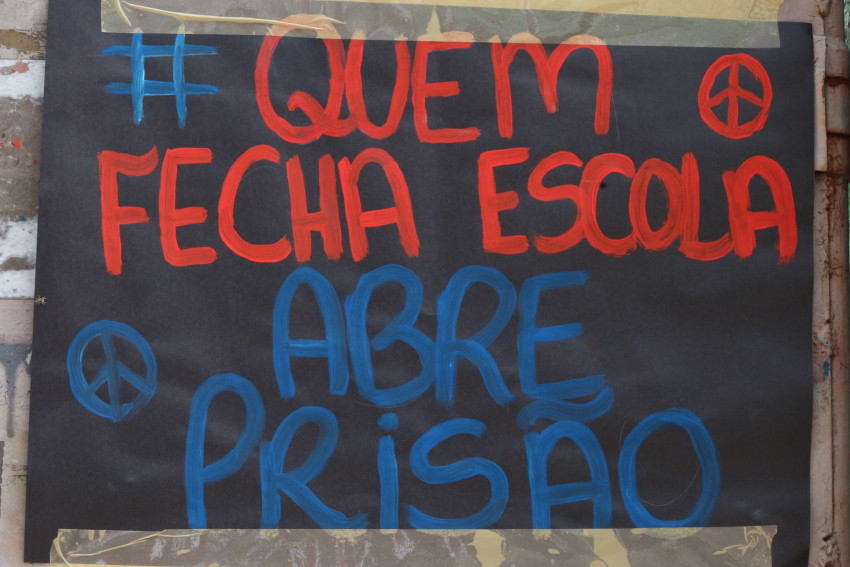 # QUEM
FECHA ESCOLA
ABRE
PRiSÃO